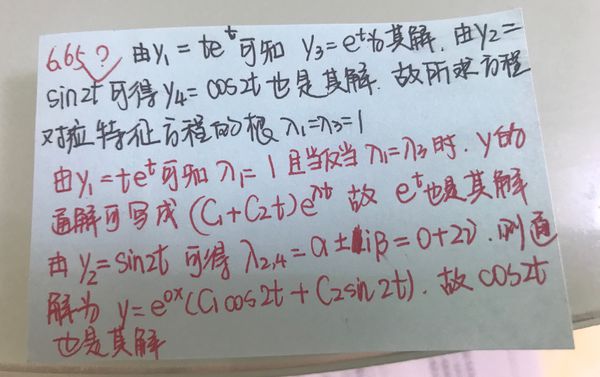 665? 由y₁ = te^t可知 y₃=e^t为其解. 由y₂=
sin2t 可得 y₄ = cos2t 也是其解. 故所求方程
对应特征方程的根 λ₁=λ₃=1
由y₁=te^t可知λ₁=1且当仅当λ₁=λ₃时. y的
通解可写成 (C₁+C₂t)e^λt 故 e^t也是其解
由 y₂=sin2t 可得 λ₂,₄=α±iβ=0+2i. 则通
解为 y=e^0x(C₁cos2t+C₂sin2t). 故cos2t
也是其解